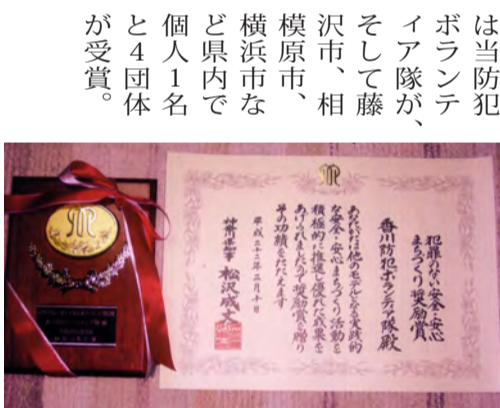 は当防犯
ボランテ
ィア隊が、
そして藤
沢市、相
模原市、
横浜市な
ど県内で
個人1名
と4団体
が受賞。
犯罪のない安全・安心
まちづくり奨励賞
香川防犯ボランティア隊殿
あなたがたは他の模範となる実践的
な安全・安心まちづくり活動を
積極的に推進し優れた成果を
あげられましたので奨励賞を贈り
その功績をたたえます
平成二十二年二月十日
神奈川県知事 松沢成文